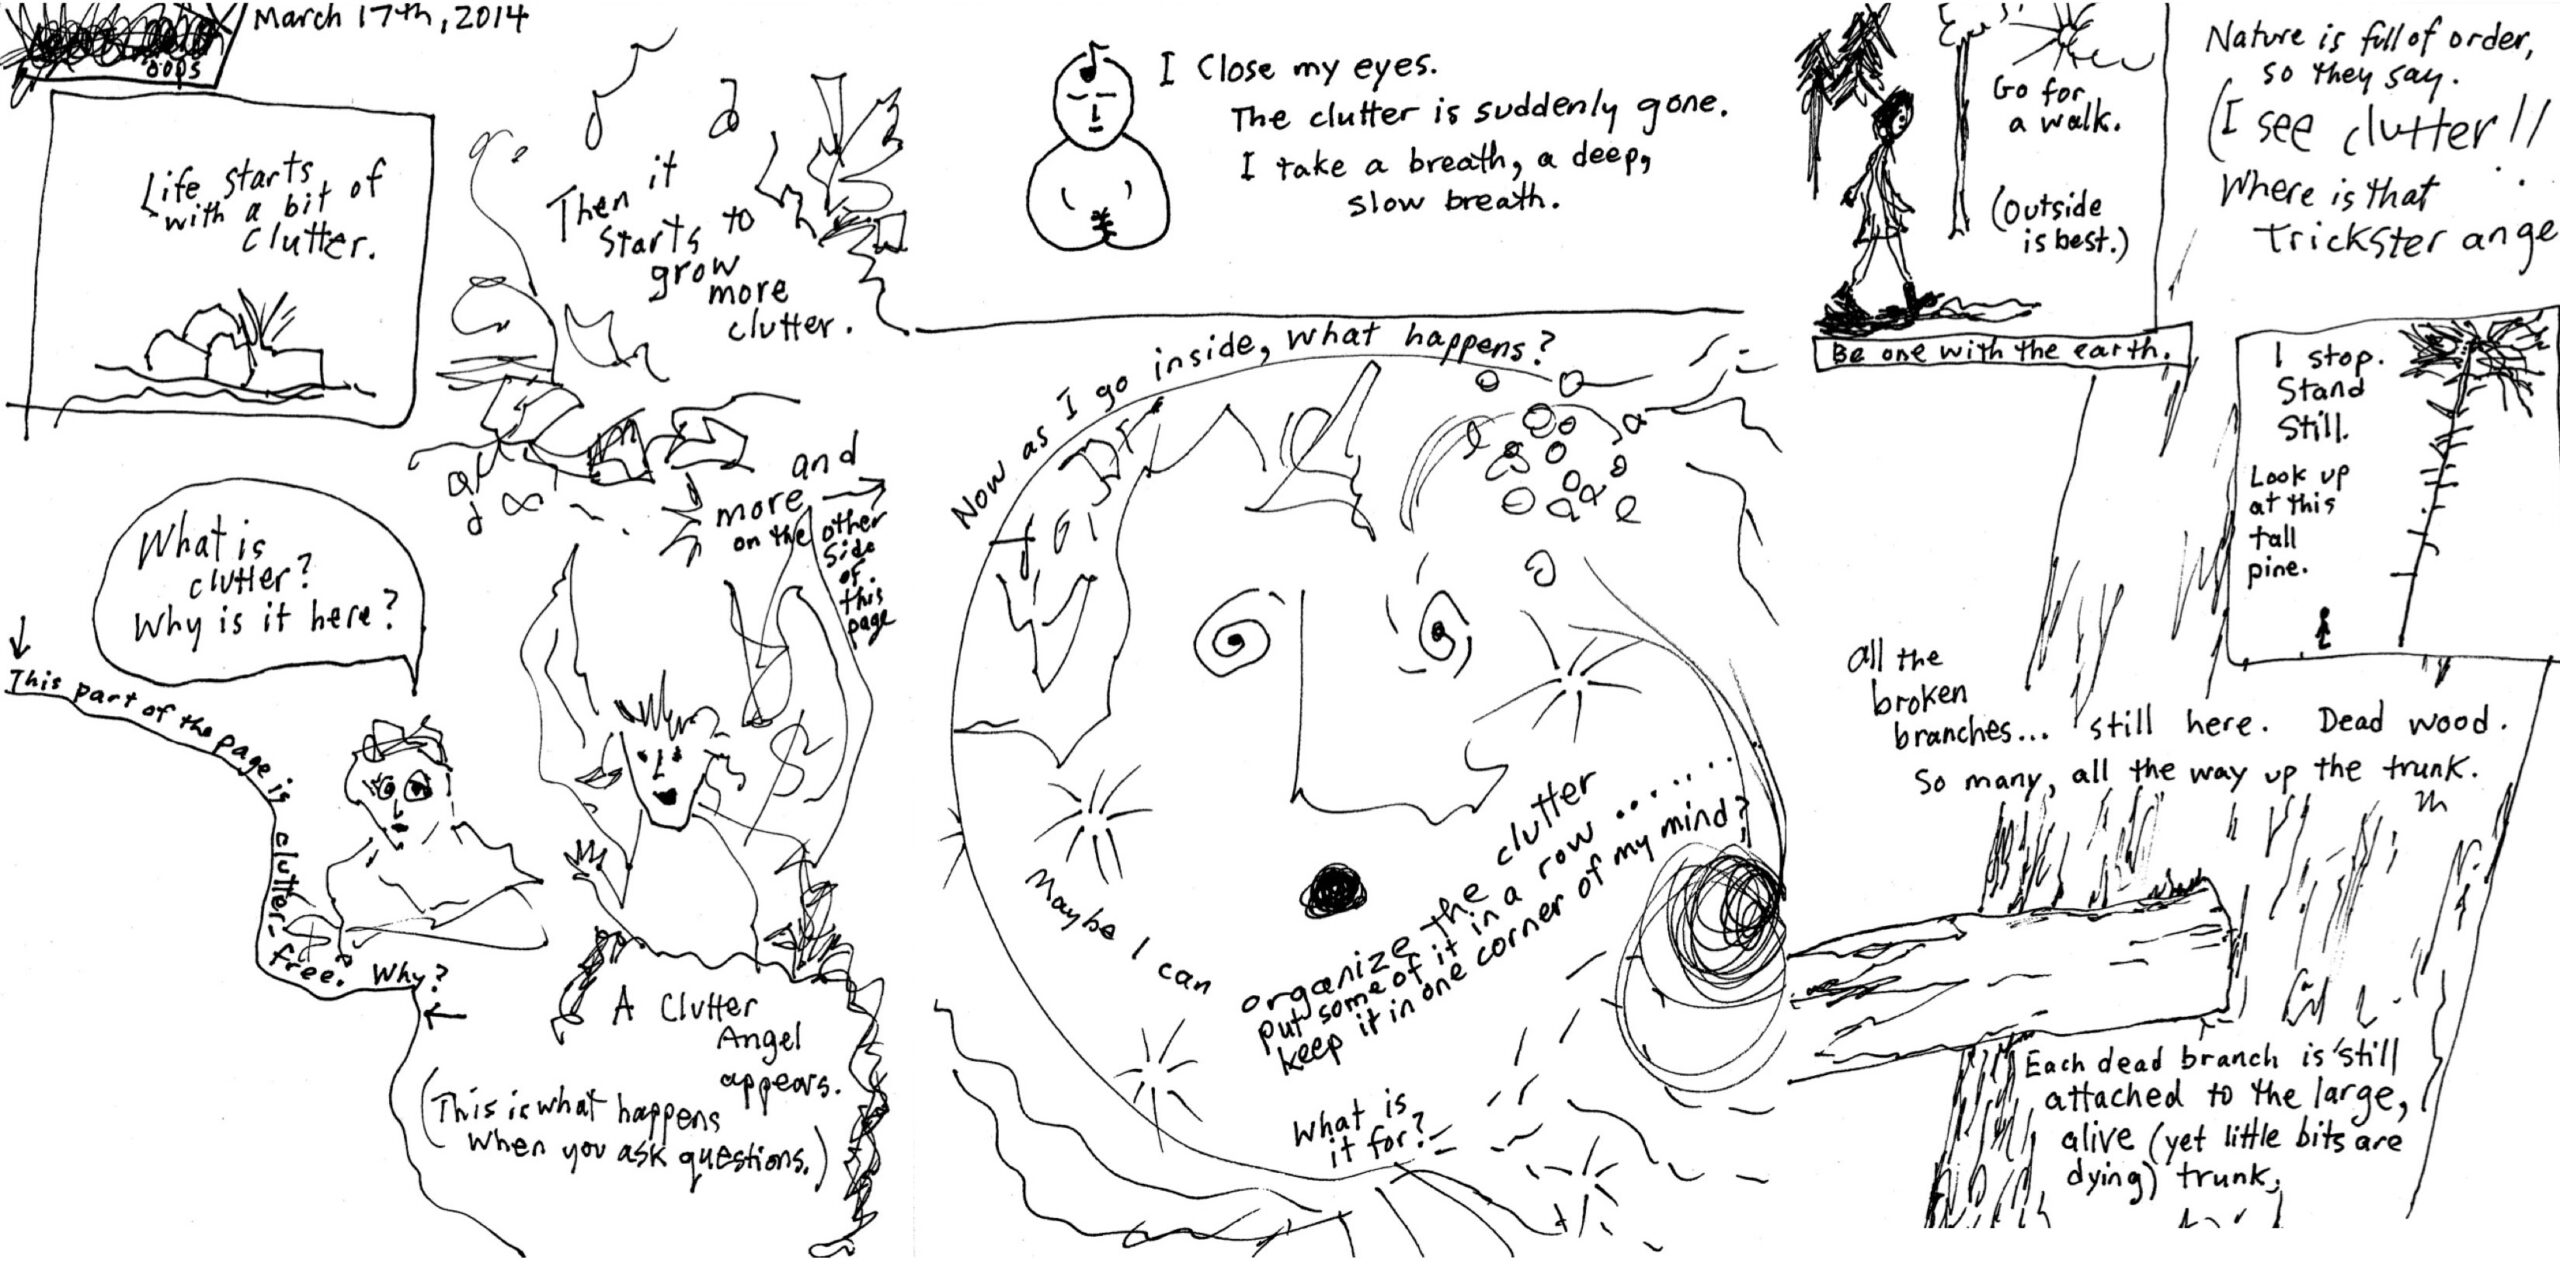 oops
March 17th, 2014
Life starts
with a bit of
clutter.
Then it
starts to
grow
more
clutter.
and
more
on the other
side
of
this
page
What is
clutter?
Why is it here?
This part of the page is
clutter-
free. Why?
A Clutter
Angel
appears.
(This is what happens
when you ask questions.)
I close my eyes.
The clutter is suddenly gone.
I take a breath, a deep,
slow breath.
Now as I go inside, what happens?
Maybe I can
organize the clutter
put some of it in a row ........
keep it in one corner of my mind?
What is
it for?
Go for
a walk.
(Outside
is best.)
Be one with the earth.
Nature is full of order,
so they say.
(I see clutter!!
Where is that
Trickster ange
I stop.
Stand
Still.
Look up
at this
tall
pine.
all the
broken
branches... still here. Dead wood.
So many, all the way up the trunk.
Each dead branch is still
attached to the large,
alive (yet little bits are
dying) trunk.